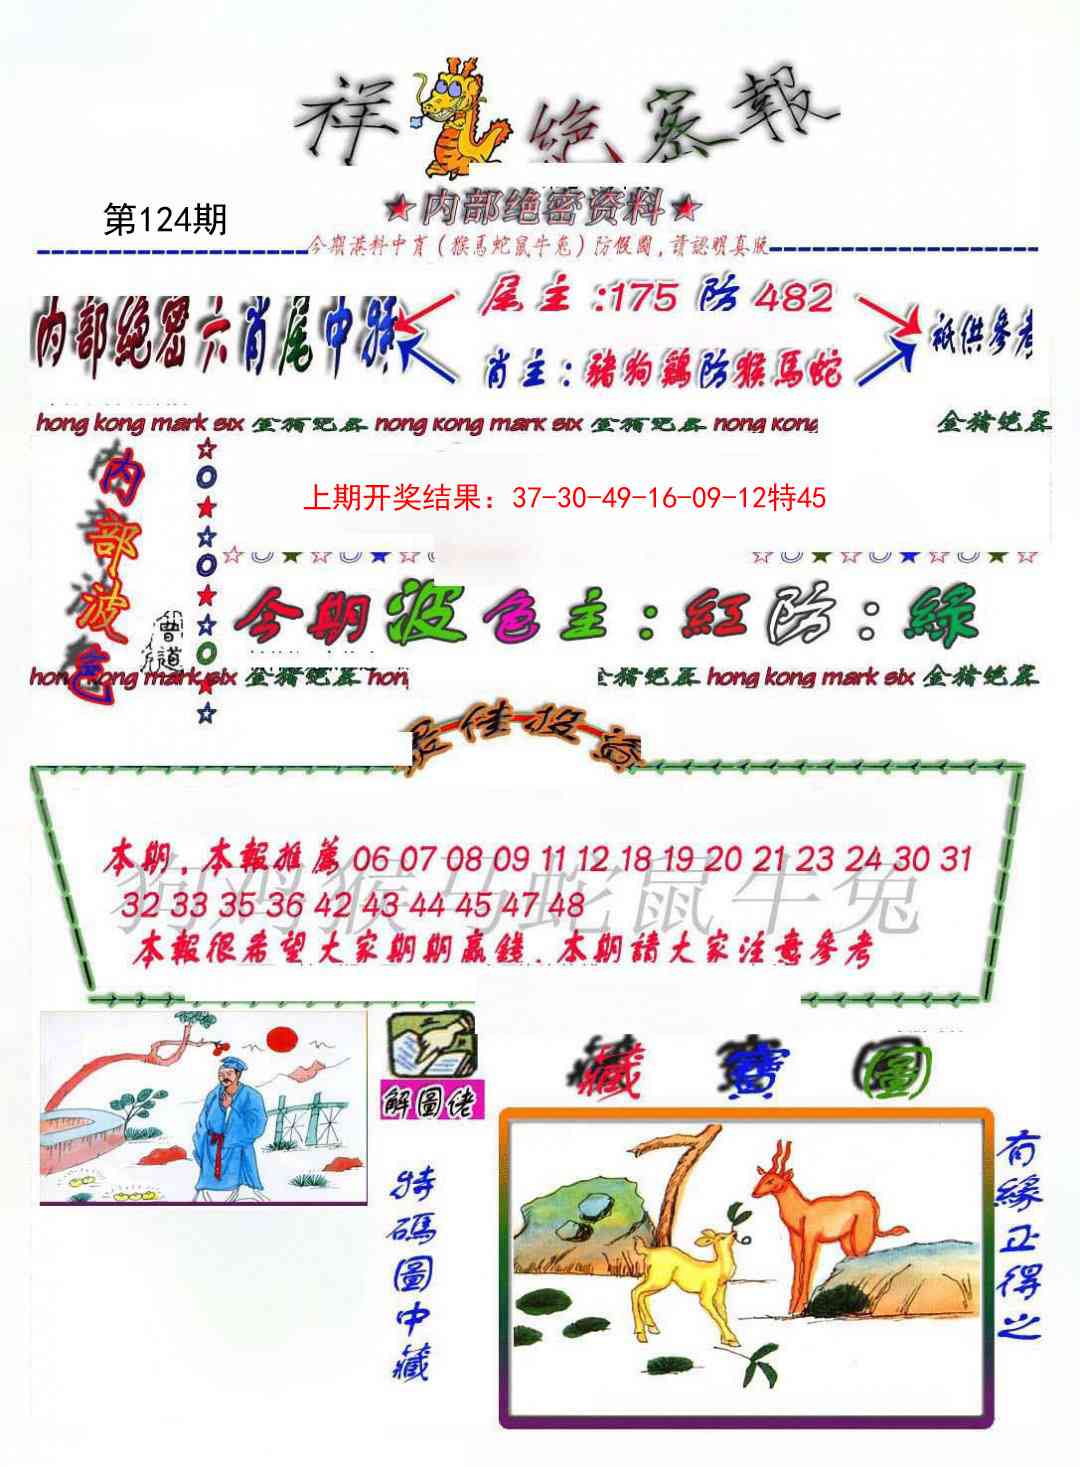 祥 绝密報
第124期
★内部绝密资料★
今期滐料中肖(猴馬蛇鼠牛兔)防假圖,請認明真版
内部绝密六肖尾中
尾主:175 防 482
肖主:豬狗鷄防猴馬蛇
祗供參考
hong kong mark six 金猪绝密 hong kong mark six 金猪绝密 hong kong 金猪绝密
内部波色
曾道
上期开奖结果:37-30-49-16-09-12特45
今期波色主:紅防:綠
hong kong mark six 金猪绝密 hong 金猪绝密 hong kong mark six 金猪绝密
最佳投资
本期,本報推薦 06 07 08 09 11 12 18 19 20 21 23 24 30 31
32 33 35 36 42 43 44 45 47 48
狗鸡猴马蛇鼠牛兔
本報很希望大家期期贏錢.本期請大家注意參考
解圖佬
特碼圖中藏
藏寶圖
有緣正得之